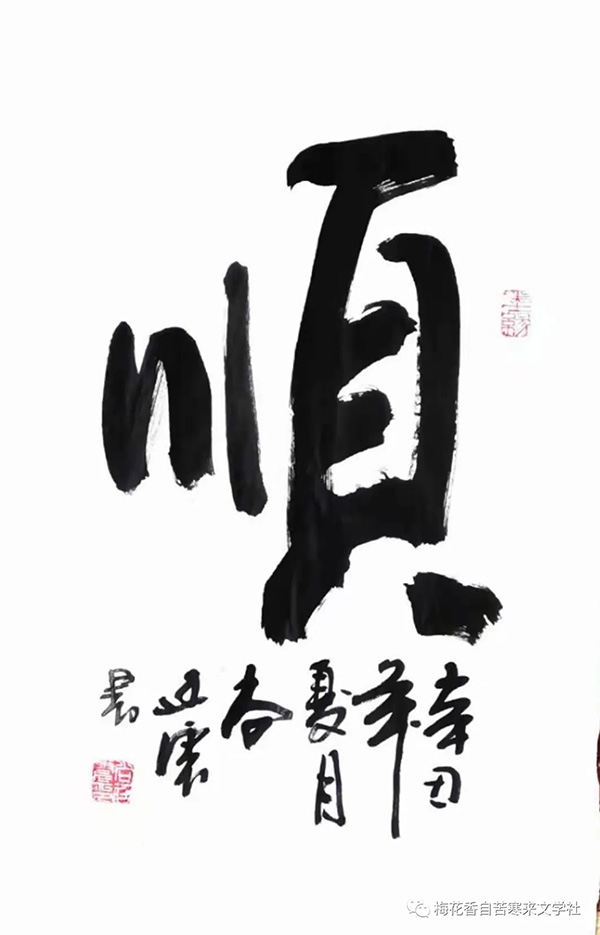 順
辛丑
年
夏月
尚
書
梅花香自苦寒来文学社